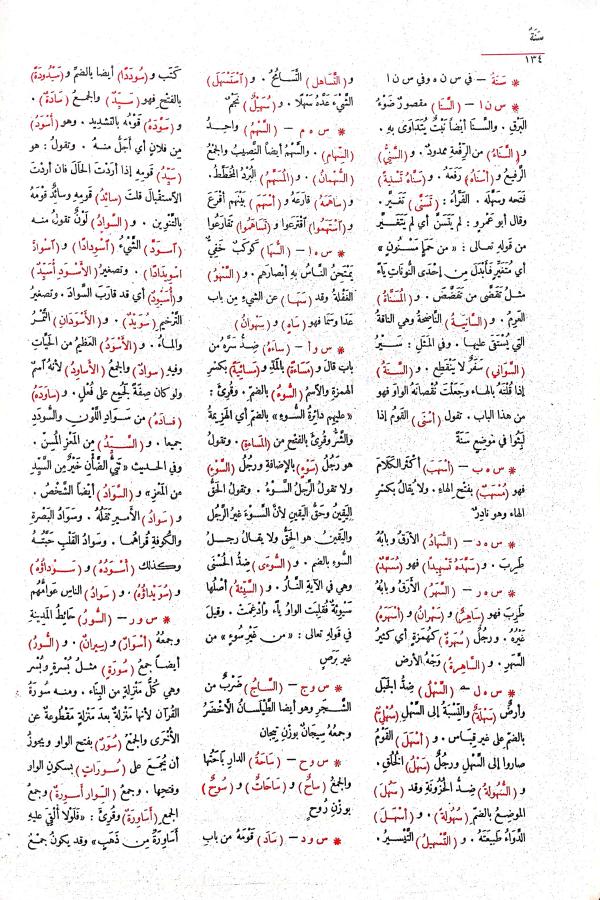 سَنَةٌ
١٣٤
* سَنَةٌ – في س ن ه وفي س ن ا
* س ن ا – (السَّنَا) مقصورٌ ضَوْءُ
البَرْقِ . والسَّنا أيضاً نَبْتٌ يُتَدَاوَى به .
و(السَّنَاءُ) من الرِّفْعةِ ممدودٌ . و(السَّنِيُّ)
الرَّفيعُ و(أَسْنَاهُ) رَفَعَهُ . و(سَنَّاهُ تَسْنِيةً)
فَتَحه وسَهَّله . الفَرَّاءُ : (تَسَنَّى) تَغَيَّر .
وقال أبو عَمْرو : لم يَتَسَنَّ أي لم يَتَغَيَّرْ
من قوله تعالى : « من حَمَإٍ مَسْنُونٍ »
أي مُتَغَيِّرٍ فأُبْدَلَ من إحْدَى النُّوناتِ ياءً
مثلُ تَقَضَّى من تَقَضَّضَ . و(المُسَنَّاةُ)
العَرِمُ . و(السَّانِيَةُ) النَّاضِحَةُ وهي الناقةُ
التي يُسْتَقَى عليها . وفي المَثَلِ : سَيْرُ
(السَّوَاني) سَفَرٌ لا يَنْقَطِع . و(السَّنَةُ)
إذا قُلْتَهُ بالهاء وجَعَلْتَ نُقْصانَهُ الواوَ فهو
من هذا الباب . تقول (أسْنَى) القومُ إذا
لَبِثُوا في موضعٍ سَنَةً
* س ه ب – (أَسْهَبَ) أكْثَرَ الكَلَامَ
فهو (مُسْهَبٌ) بفتح الهاء . ولا يُقالُ بكسرِ
الهاء وهو نادِرٌ
* س ه د – (السُّهَادُ) الأَرَقُ وبابُهُ
طَرِبَ . و(سَهَّدَهُ تَسْهِيداً) فهو (مُسَهَّدٌ)
* س ه ر – (السَّهَرُ) الأَرَقُ وبابُهُ
طَرِبَ فهو (سَاهِرٌ) و(سَهْرانُ) و(أَسْهَرَهُ)
غَيْرُهُ . ورجُلٌ (سُهَرَةٌ) كهُمَزةٍ أي كثيرُ
السَّهَرِ . و(السَّاهِرةُ) وَجْهُ الأرض
* س ه ل – (السَّهْلُ) ضِدُّ الجَبَلِ
وأرضٌ (سَهْلَةٌ) والنِّسْبَةُ إلى السَّهْلِ (سُهْلِيٌّ)
بالضمِّ على غير قِيَاسٍ . و(أَسْهَلَ) القومُ
صاروا إلى السَّهْلِ ورجُلٌ (سَهْلُ) الخُلُقِ .
و(السُّهُولةُ) ضِدُّ الحُزُونَةِ وقد (سَهُلَ)
الموضِعُ بالضمِّ (سُهُولَةً) . و(أَسْهَلَ)
الدَّوَاءُ طَبيعَتَهُ . و(التَّسْهِيلُ) التَّيْسِيرُ .
و(التَّساهل) التَّسَامُحُ . و(آسْتَسْهَلَ)
الشَّيْءَ عَدَّهُ سَهْلًا . و(سُهَيْلٌ) نَجْمٌ
* س ه م – (السَّهْمُ) واحِدُ
(السِّهام) . والسَّهْمُ أيضاً النَّصِيبُ والجمعُ
(السُّهْمَانُ) . و(المُسَهَّمُ) البُرْدُ المُخَطَّطُ .
و(سَاهَمَهُ) قارَعَهُ و(أسْهَمَ) بَيْنَهم أقْرَعَ
و(آسْتَهَمُوا) آقْتَرَعوا و(تَساهَمُوا) تَقَارَعُوا
* س ه ا – (السُّهَا) كوكبٌ خَفِيٌّ
يَمْتَحِنُ النَّاسُ بِهِ أبْصارَهم . و(السَّهْوُ)
الغَفْلَةُ وقد (سَهَا) عن الشيء من باب
عَدَا وَسَما فهو (سَاهٍ) و(سَهْوانُ)
* س و أ – (سَاءَهُ) ضِدُّ سَرَّهُ من
باب قالَ و(مَسَاءَةً) بالمَدِّ و(مَسَائِيَةً) بكسْرِ
الهمزة والاسمُ (السُّوءُ) بالضم . وقُرِئَ :
« عليهم دائرَةُ السُّوءِ » بالضم أي الهزيمةُ
والشَّرُّ وقُرِئَ بالفتح من (المساءة) . وتقولُ
هو رَجُلُ (سَوْءٍ) بالإضافةِ ورجُلُ (السَّوْءِ)
ولا تقولُ الرَّجلُ السَّوْءُ . وتقول الحَقُّ
اليَقِينُ وحَقُّ اليَقينِ لأنَّ السَّوْءَ غيرُ الرَّجُلِ
واليقين هو الحَقُّ ولا يقالُ رجلُ
السُّوءِ بالضم . و(السُّوءَى) ضِدُّ الحُسْنَى
وهي في الآية النَّارُ . و(السَّيِّئَةُ) أصلُها
سَيْوِئَةٌ فقُلِبَت الواوُ ياءً وأُدْغِمَتْ . وقيل
في قوله تعالى : « من غَيْرِ سُوءٍ » من
غير بَرَصٍ
* س و ج – (السَّاجُ) ضَرْبٌ من
الشَّجَرِ وهو أيضا الطَّيْلَسانُ الأَخْضَرُ
وجمعُهُ سِيجَانٌ بوَزْنِ تِيجان
* س و ح – (سَاحَةُ) الدارِ باحَتُها
والجمعُ (ساحٌ) و(سَاحَاتٌ) و(سُوحٌ)
بوزْنِ رُوحٍ
* س و د – (سَادَ) قَوْمَهُ من باب
كتَب و(سُودَدًا) أيضا بالضم و(سَيْدُودَةً)
بالفتح فهو (سَيِّدٌ) والجمعُ (سَادَةٌ) .
و(سَوَّدَهُ) قَوْمُه بالتشديد . وهو (أَسْوَدُ)
مِن فلانٍ أي أجَلُّ منه . وتقولُ : هو
(سَيِّدُ) قومِهِ إذا أرَدْتَ الحَالَ فان أردْتَ
الاستقبالَ قلتَ (سائدُ) قَومِهِ وسائدٌ قَوْمَهُ
بالتنْوِينِ . و(السَّوادُ) لَوْنٌ تقولُ منه
(آسْوَدَّ) الشَّيْءُ (آسْوِدادًا) و(آسْوادَّ
اسْوِيدَادًا) . وتصغيرُ (الأسْوَدِ أُسَيِّدٌ)
و(أُسَيْوِدٌ) أي قد قارَبَ السَّوادَ . وتصغيرُ
التَّرْخيمِ (سُوَيْدٌ) . و(الأَسْوَدَانِ) التَّمْرُ
والماءُ . و(الأَسْوَدُ) العَظيمُ من الحَيَّاتِ
وفيهِ سَوادٌ والجمعُ (الأَسَاوِدُ) لأنه آسمٌ
ولو كان صِفَةً لَجُمِعَ على فُعْلٍ . و(سَاوَدَهُ
فسادَهُ) من سَوَادِ اللَّوْنِ والسُّودَدِ
جميعا . و(السَّيِّدُ) من المَعْزِ المُسِنُّ .
وفي الحديث « ثَنِيُّ الضَّأنِ خَيْرٌ من السَّيِّدِ
من المَعْزِ » و(السَّوَادُ) أيضاً الشَّخْصُ .
و(سَوادُ) الأَمِيرِ ثَقَلُهُ . وسَوَادُ البَصْرةِ
والكُوفةِ قُراهُما . وسَوادُ القَلْبِ حَبَّتُهُ
وكذلك (أَسْوَدُهُ) و(سَوْداؤُهُ)
و(سُوَيْداؤُهُ) . و(سَوادُ) الناسِ عَوَامُّهم
* س و ر – (السُّورُ) حائطُ المدِينة
وجمعُهُ (أسْوارٌ) و(سِيرانٌ) . و(السُّورُ)
أيضاً جمعُ (سُورَةٍ) مثلُ بُسْرَةٍ وبُسْرٍ
وهي كُلُّ مَنْزِلةٍ من البِنَاء . ومنه سُورَةُ
القُرآن لأنها مَنْزِلةٌ بعدَ مَنْزِلةٍ مَقْطُوعَةٌ عن
الأُخْرَى والجمعُ (سُوَرٌ) بفتح الواوِ ويجوزُ
أن يُجمَعَ على (سُورَاتٍ) بسكونِ الواوِ
وفتحِها . وجمعُ (السِّوارِ أَسْوِرَةٌ) وجمعُ
الجمع (أَسَاوِرَةٌ) وقُرِئَ : « فَلَوْلَا أُلْقِيَ عليهِ
أَسَاوِرَةٌ من ذَهَبٍ » وقد يكونُ جمعُ